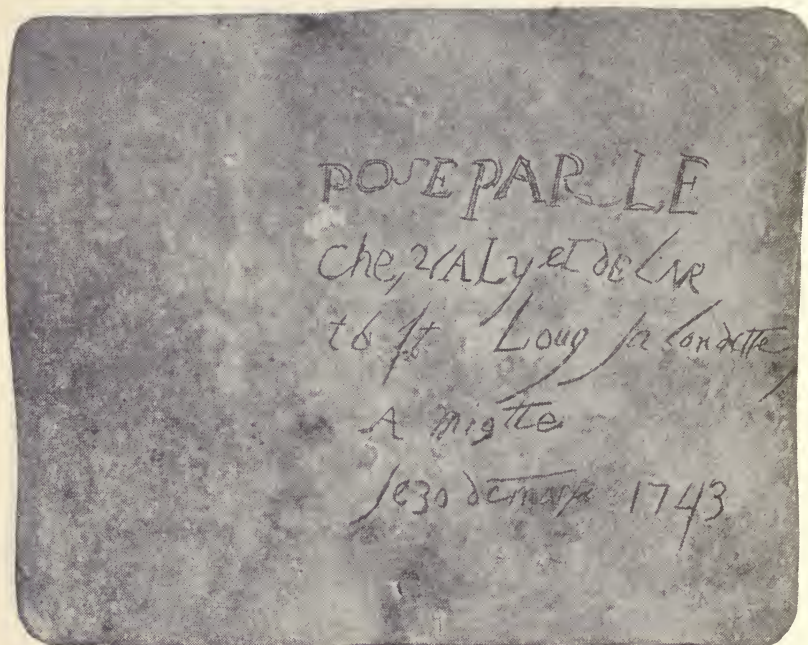 POSE PAR LE
Che,VALyet DE LAR
Louy la Londette,
A miotte
le 30 de mars 1743